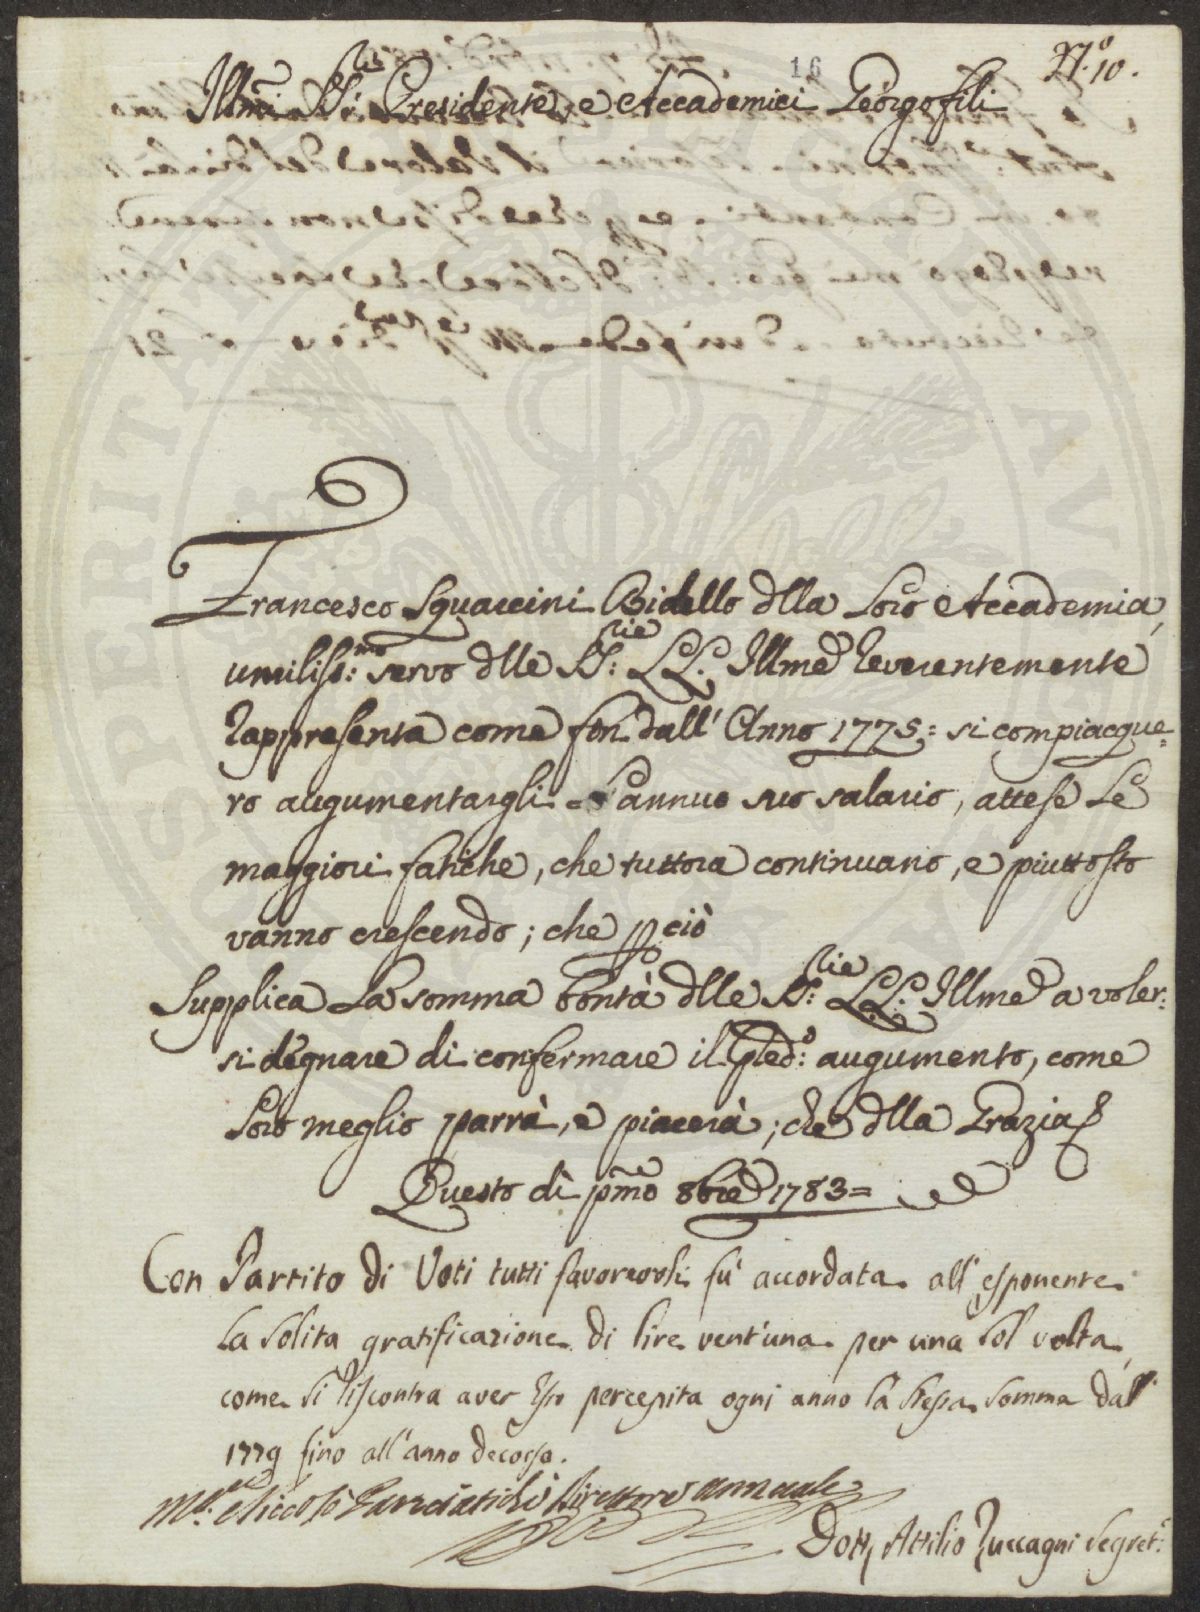 16
N.° 10.
Illmi SS.ri Presidente, e Accademici Georgofili
Francesco Sguaccini Bidello dlla Loro Accademia,
umiliss:mo servo dlle SS:rie LL. Illme reverentemente
rappresenta come fin dall' Anno 1775: si compiacque=
ro augumentargli l'annuo suo salario, attese Le
maggiori fatiche, che tuttora continuano, e piuttosto
vanno crescendo; che p ciò
Supplica La somma bontà dlle SS:rie LL. Illme a voler:
si degnare di confermare il pled:o augumento, come
Loro meglio parrà, e piacerà; che dlla Grazia
Questo dì pmo 8bre 1783=
Con Partito di Voti tutti favorevoli fù accordata all'esponente
la solita gratificazione di lire vent'una per una sol volta,
come si riscontra aver Esso percepita ogni anno la stessa somma dal
1779 fino all'anno decorso.
Niccolò Panciatichi Direttore annuale
Dott. Attilio Zuccagni Segret:
PROSPERITATI PUBLICAE AUGENDAE